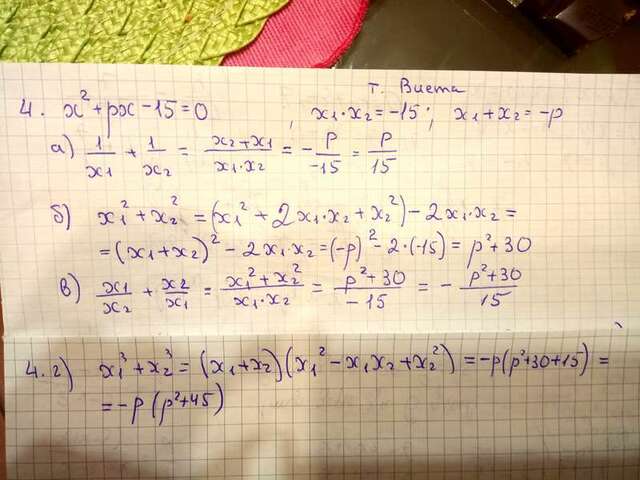 т. Виета
4. x² + px - 15 = 0 , x₁·x₂ = -15; x₁ + x₂ = -p
а) 1/x₁ + 1/x₂ = (x₂ + x₁)/(x₁·x₂) = - p/-15 = p/15
б) x₁² + x₂² = (x₁² + 2x₁·x₂ + x₂²) - 2x₁·x₂ =
= (x₁ + x₂)² - 2x₁x₂ = (-p)² - 2·(-15) = p² + 30
в) x₁/x₂ + x₂/x₁ = (x₁² + x₂²)/(x₁·x₂) = (p² + 30)/-15 = - (p² + 30)/15
4. г) x₁³ + x₂³ = (x₁ + x₂)(x₁² - x₁x₂ + x₂²) = -p(p² + 30 + 15) =
= -p(p² + 45)